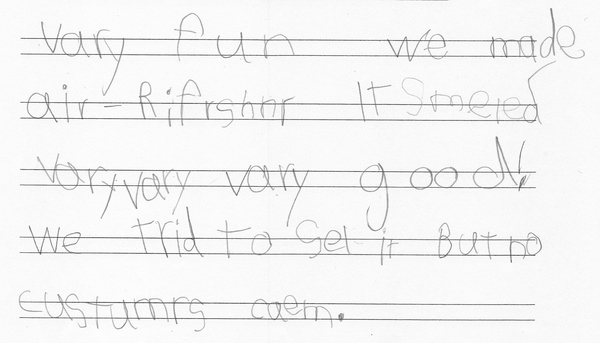 vary fun we made
air-Rifrshnr IT Smeled
varyvary vary good!
We trid to Sel it But no
custumrs caem.